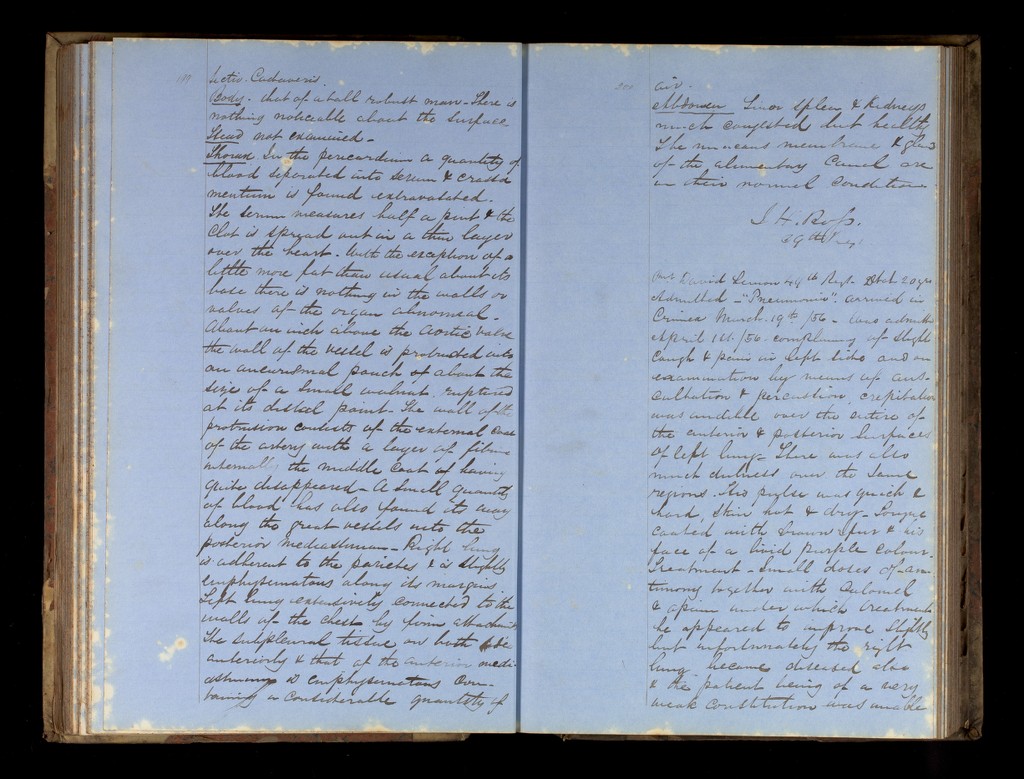 199
Sectio Cadaveris.
Body. that of a tall robust man - There is
nothing noticeable about the surface
Head not examined -
Thorax In the pericardium a quantity of
blood seperated into serum & crassa
mentum is found extravasated.
The serum measures half a pint & the
Clot is spread out in a thin layer
over the heart. With the exception of a
little more fat than usual about its
base there is nothing in the walls or
valves of the organ abnormal.
About an inch above the Aortic valve
the wall of the vessel is protruded into
an aneurismal pouch of about the
size of a small walnut, ruptured
at its distal point. The wall of the
protrusion consists of the external coat
of the artery with a layer of fibrin
internally the middle Coat of having
quite disappeared - A small quantity
of blood has also found its way
along the great vessels into the
posterior mediastinum - Right lung
is adherent to the parietes & is slightly
emphysematous along its margins
Left lung extensively connected to the
walls of the chest by firm attachments
The subpleural tissue on both side
anteriorly & that of the anterior medi-
astinum is emphysematous Con-
taining a considerable quantity of
200
air.
Abdomen Liver Spleen & Kidneys
much congested but healthy
The mucous membrane & glands
of the alimentary Canal are
in their normal Condition.
J. H. Ross.
David 44th Regt. 20 yrs
Admitted - "Pneumonia" arrived in
Crimea March 19th /56 - was admitted
April 1st /56 complaining of slight
Cough & pain in left side and on
examination by means of aus-
cultation & percussion, crepitation
was audible over the entire of
the anterior & posterior Surfaces
of left lung - There was also
much dulness over the same
regions. His pulse was quick &
hard, skin hot & dry - Tongue
coated with brown fur & his
face of a livid purple Colour.
Treatment - Small doses of an-
timony together with Calomel
& opium under which treatment
he appeared to improve slightly
but unfortunately the right
lung became diseased also
& the patient being of a very
weak constitution was unable